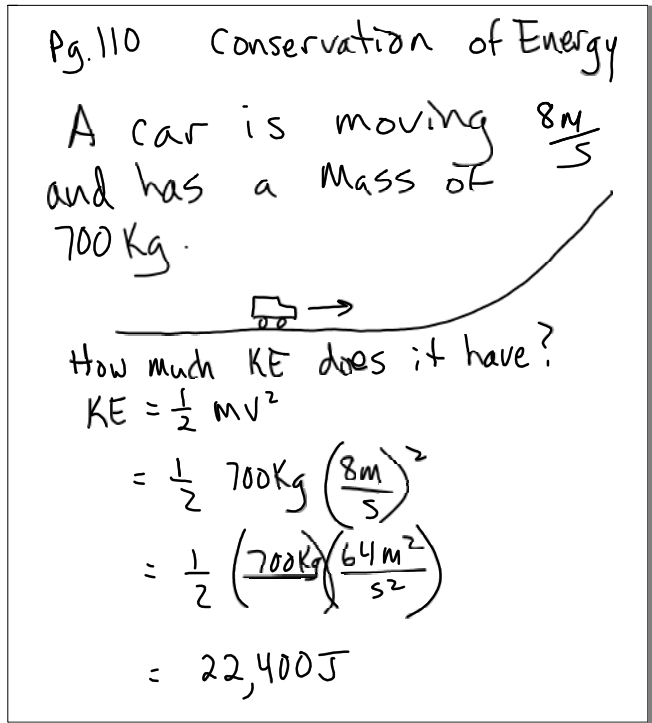 Pg. 110 Conservation of Energy
A car is moving 8m/s
and has a Mass of
700 Kg.
How much KE does it have?
KE = 1/2 mv²
= 1/2 700Kg (8m/s)²
= 1/2 (700Kg)(64m²/s²)
= 22,400J